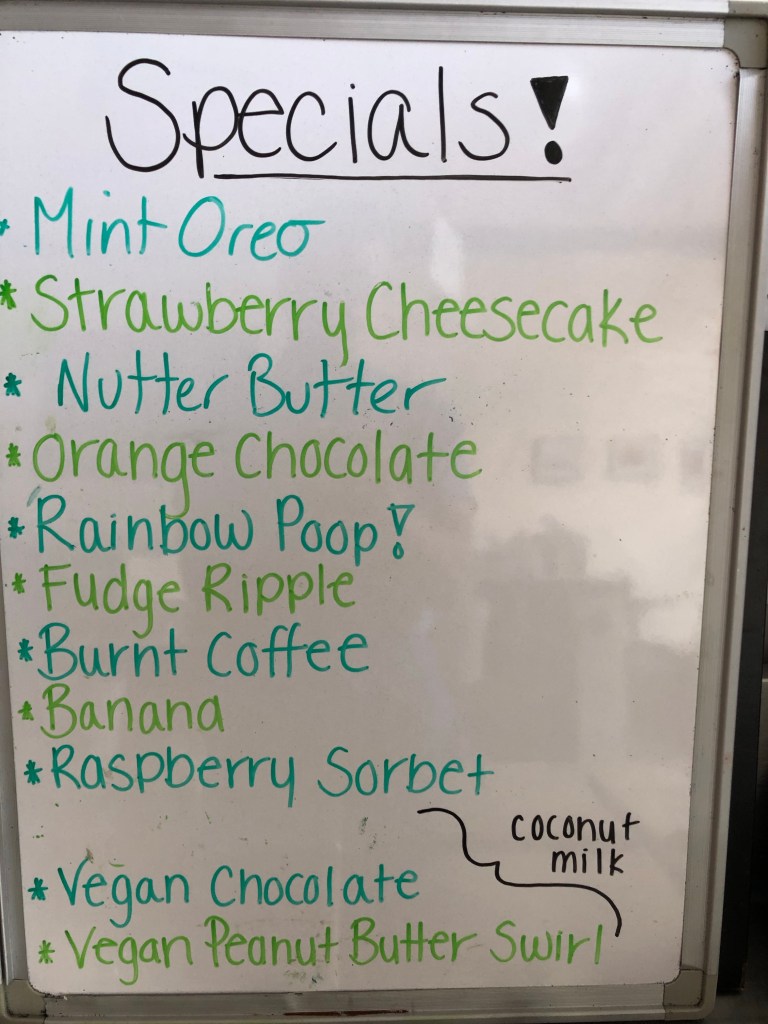 Specials!
* Mint Oreo
* Strawberry Cheesecake
* Nutter Butter
* Orange Chocolate
* Rainbow Poop!
* Fudge Ripple
* Burnt Coffee
* Banana
* Raspberry Sorbet
coconut
milk
* Vegan Chocolate
* Vegan Peanut Butter Swirl